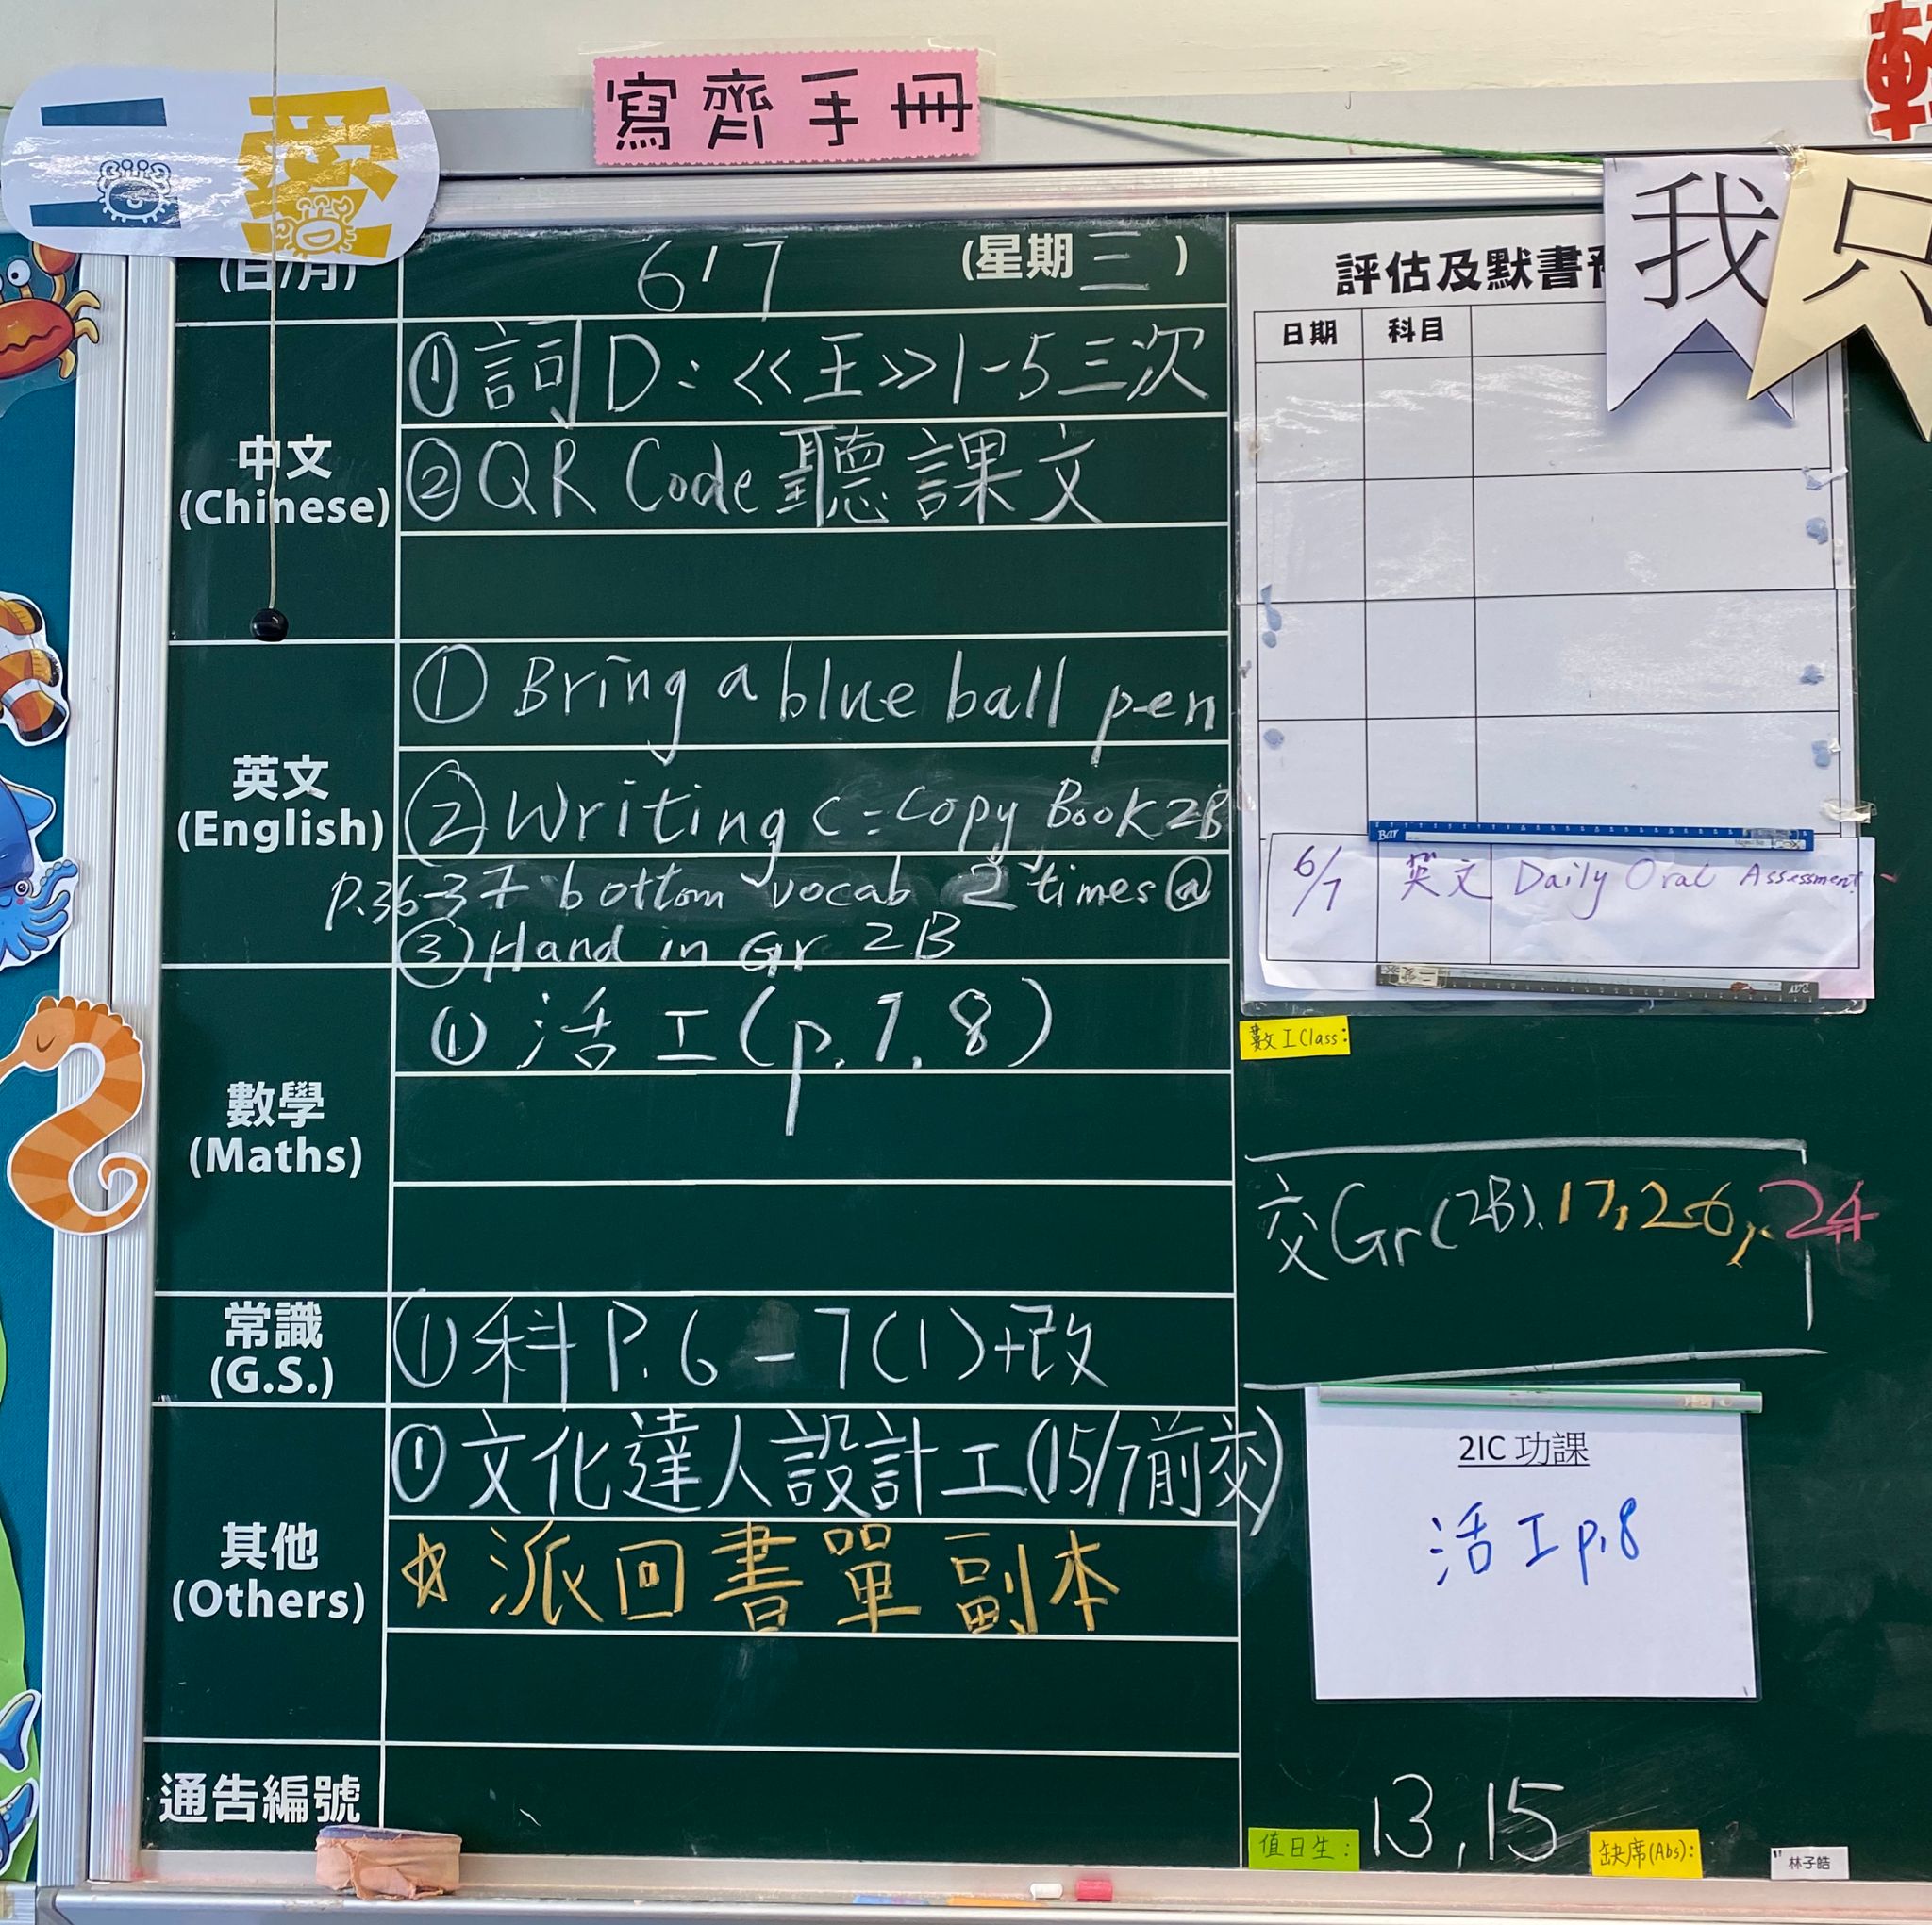 二愛
寫齊手冊
我 只
(日/月) 6/7 (星期三)
中文
(Chinese)
①詞D:<<王>>1-5三次
②QR Code聽課文
英文
(English)
① Bring a blue ball pen
② Writing C: Copy Book 2B
p.36-37 bottom vocab 2 times @
③ Hand in Gr 2B
數學
(Maths)
① 活工(p.7,8)
常識
(G.S.)
①科P.6-7(1)+改
其他
(Others)
①文化達人設計工(15/7前交)
☆派回書單副本
通告編號
評估及默書
日期 科目
6/7 英文 Daily Oral Assessment
數工Class:
交Gr(2B).17,26,24
2IC 功課
活工p.8
值日生: 13,15
缺席(Abs):
林子皓